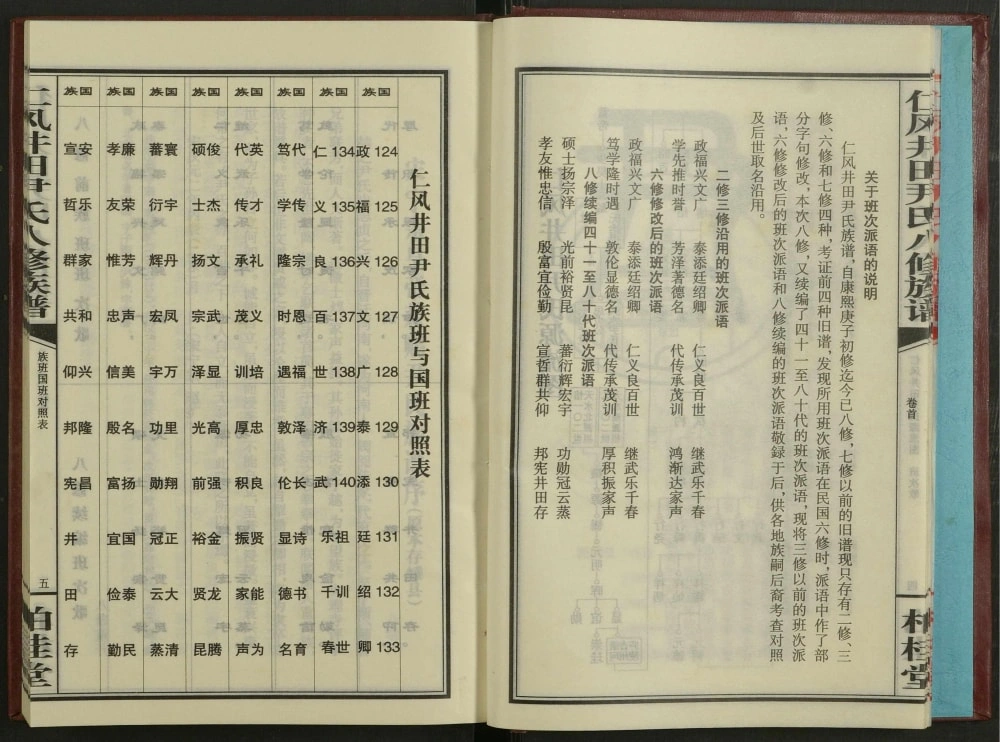 仁风井田尹氏八修族谱
卷首
柏桂堂
关于班次派语的说明
仁风井田尹氏族谱，自康熙庚子初修迄今已八修，七修以前的旧谱现只存有二修、三
修、六修和七修四种，考证前四种旧谱，发现所用班次派语在民国六修时，派语中作了部
分字句修改，本次八修，又续编了四十一至八十代的班次派语，现将三修以前的班次派
语，六修修改后的班次派语和八修续编的班次派语敬録于后，供各地族嗣后裔考查对照
及后世取名沿用。
二修三修沿用的班次派语
政福兴文广 泰添廷绍卿 仁义良百世 继武乐千春
学先推时誉 芳泽著德名 代传承茂训 鸿渐达家声
六修修改后的班次派语
政福兴文广 泰添廷绍卿 仁义良百世 继武乐千春
笃学隆时遇 敦伦显德名 代传承茂训 厚积振家声
八修续编四十一至八十代班次派语
硕士扬宗泽 光前裕贤昆 蕃衍辉宏宇 功勋冠云蒸
孝友惟忠信 殷富宜俭勤 宣哲群共仰 邦宪井田存
仁风井田尹氏族班与国班对照表
族国
政124 福125 兴126 文127 广128 泰129 添130 廷131 绍132 卿133
族国
仁134 义135 良136 百137 世138 济139 武140 乐祖 千训 春世
族国
笃代 学传 隆宗 时恩 遇福 敦泽 伦长 显诗 德书 名育
族国
代英 传才 承礼 茂义 训培 厚忠 积良 振贤 家能 声为
族国
硕俊 士杰 扬文 宗武 泽显 光高 前强 裕金 贤龙 昆腾
族国
蕃寰 衍宇 辉丹 宏凤 宇万 功里 勋翔 冠正 云大 蒸清
族国
孝廉 友荣 惟芳 忠声 信美 殷名 富扬 宜国 俭泰 勤民
族国
宣安 哲乐 群家 共和 仰兴 邦隆 宪昌 井 田 存
仁风井田尹氏八修族谱
族班国班对照表
五
柏桂堂